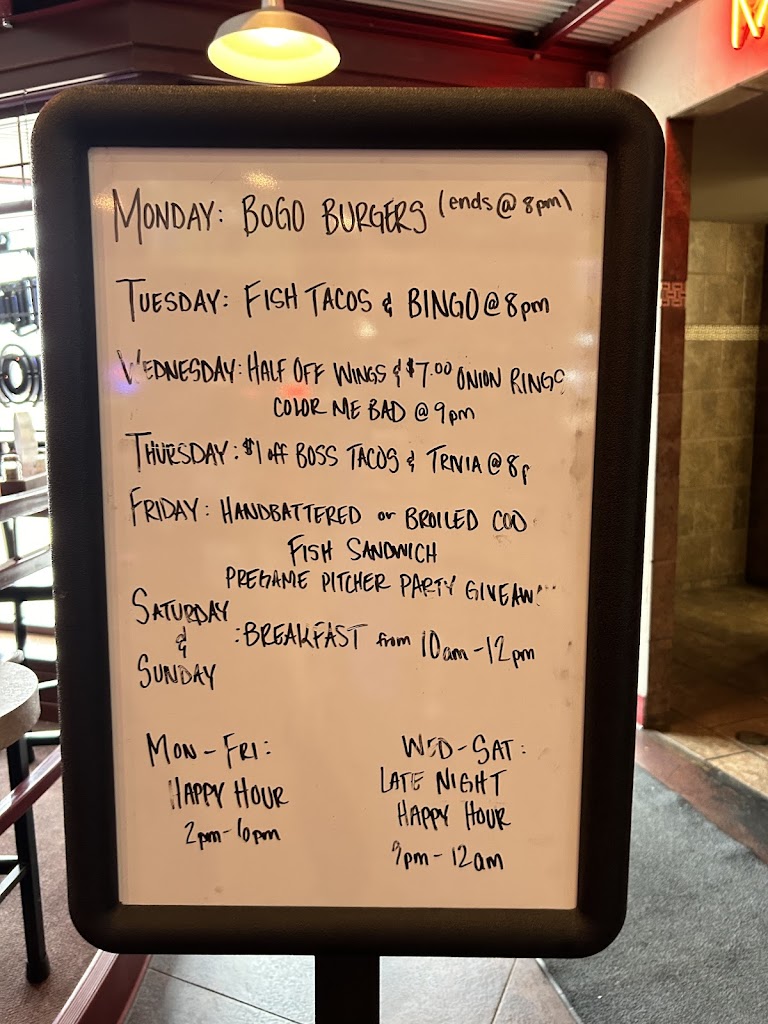 MONDAY: BOGO BURGERS (ends @ 8pm)
TUESDAY: FISH TACOS & BINGO @ 8pm
WEDNESDAY: HALF OFF WINGS & $7.00 ONION RINGS
COLOR ME BAD @ 9pm
THURSDAY: $1 off BOSS TACOS & TRIVIA @ 8p
FRIDAY: HANDBATTERED or BROILED COD
FISH SANDWICH
PREGAME PITCHER PARTY GIVEAW
SATURDAY
&
SUNDAY
: BREAKFAST from 10am-12pm
MON-FRI:
HAPPY HOUR
2pm-6pm
WED-SAT:
LATE NIGHT
HAPPY HOUR
9pm-12am
M